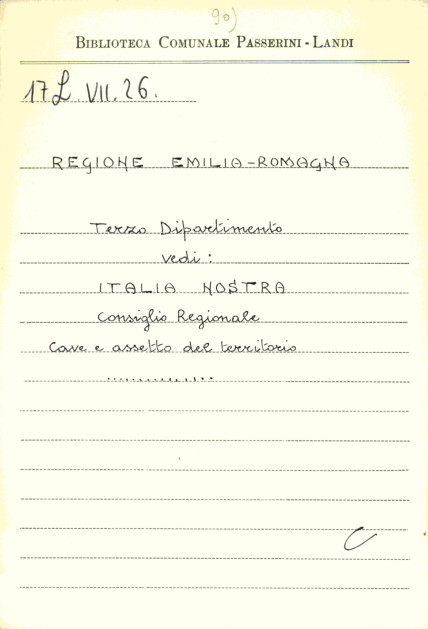 90)
BIBLIOTECA COMUNALE PASSERINI - LANDI
17 L. VII. 26.
REGIONE EMILIA-ROMAGNA
Terzo Dipartimento
vedi :
ITALIA NOSTRA
Consiglio Regionale
Cave e assetto del territorio
..............
C